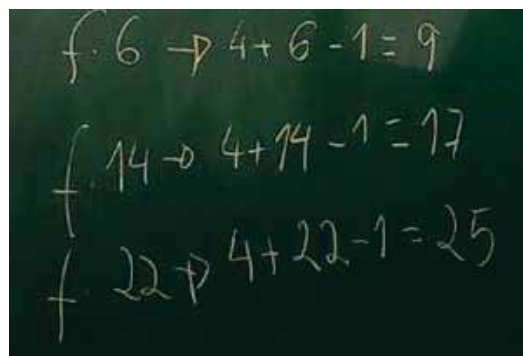 f. 6 → 4 + 6 - 1 = 9
f. 14 → 4 + 14 - 1 = 17
f. 22 → 4 + 22 - 1 = 25